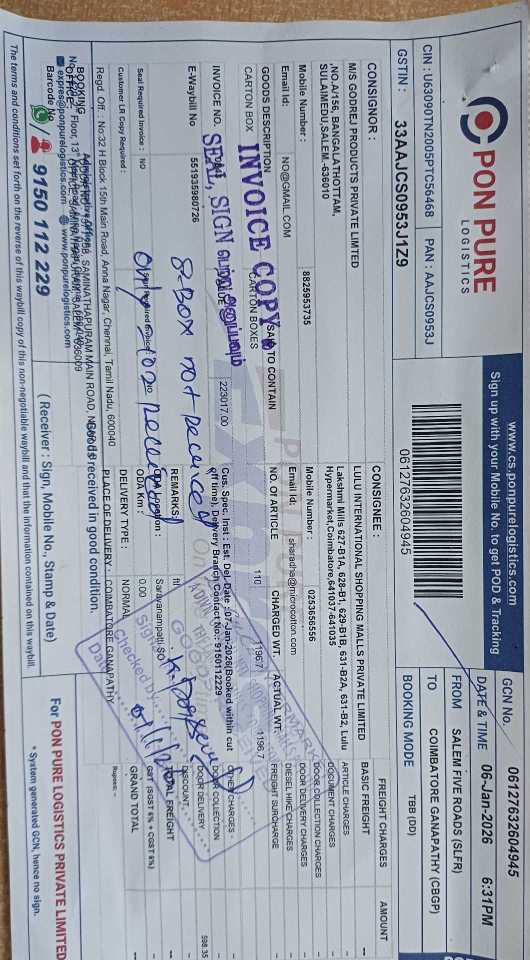 PON PURE
LOGISTICS
www.cs.ponpurelogistics.com
Sign up with your Mobile No. to get POD & Tracking
CIN : U63090TN2005PTC56468 PAN : AAJCS0953J
GSTIN : 33AAJCS0953J1Z9
06127632604945
GCN No. 06127632604945
DATE & TIME 06-Jan-2026 6:31PM
FROM SALEM FIVE ROADS (SLFR)
TO COIMBATORE GANAPATHY (CBGP)
BOOKING MODE TBB (DD)
CONSIGNOR :
M/S GODREJ PRODUCTS PRIVATE LIMITED
,NO.A/156, BANGALATHOTTAM,
SULAIMEDU,SALEM.-636010
Mobile Number : 8825953735
Email Id: NO@GMAIL.COM
CONSIGNEE :
LULU INTERNATIONAL SHOPPING MALLS PRIVATE LIMITED
Lakshmi Mills 627-B1A, 628-B1, 629-B1B, 631-B2A, 631-B2, Lulu
Hypermarket,Coimbatore,641037-641035
Mobile Number : 0253656556
Email Id: sharadha@microcotton.com
GOODS DESCRIPTION SAID TO CONTAIN NO. OF ARTICLE CHARGED WT. ACTUAL WT.
CARTON BOX CARTON BOXES 110 1196.7 1196.7
INVOICE COPY
SEAL, SIGN
INVOICE NO. 223017.00
E-Waybill No 551935980726
Cus. Spec. Inst : Est. Del. Date : 07-Jan-2026(Booked within cut
off time), Delivery Branch Contact No.: 9150112229
REMARKS: ttl
Seal Required Invoice : NO
Sign Required Invoice :
Customer LR Copy Required :
ODA Location : Saravanampatti So
ODA Km : 0.00
DELIVERY TYPE : NORMAL
PLACE OF DELIVERY : COIMBATORE GANAPATHY
8-Box not received
only 102 received
Checked by
Sign
Date
FREIGHT CHARGES AMOUNT
BASIC FREIGHT --
ARTICLE CHARGES
DOCUMENT CHARGES
DOOR COLLECTION CHARGES
DOOR DELIVERY CHARGES
DIESEL HIKE CHARGES
FREIGHT SURCHARGE
OTHER CHARGES -
DOOR COLLECTION
DOOR DELIVERY 598.35
DISCOUNT
TOTAL FREIGHT --
GST (SGST 6% + CGST 6%)
GRAND TOTAL --
Rupees: -
Regd. Off. : No:32 H Block 15th Main Road, Anna Nagar, Chennai, Tamil Nadu, 600040
Goods received in good condition.
( Receiver : Sign, Mobile No., Stamp & Date)
BOOKING
OFFICE
SAMINATHAPURAM MAIN ROAD,
Administrative Office
expres@ponpurelogistics.com www.ponpurelogistics.com
Barcode No
9150 112 229
For PON PURE LOGISTICS PRIVATE LIMITED
* System generated GCN, hence no sign.
The terms and conditions set forth on the reverse of this waybill copy of this non-negotiable waybill and that the information contained on this waybill.